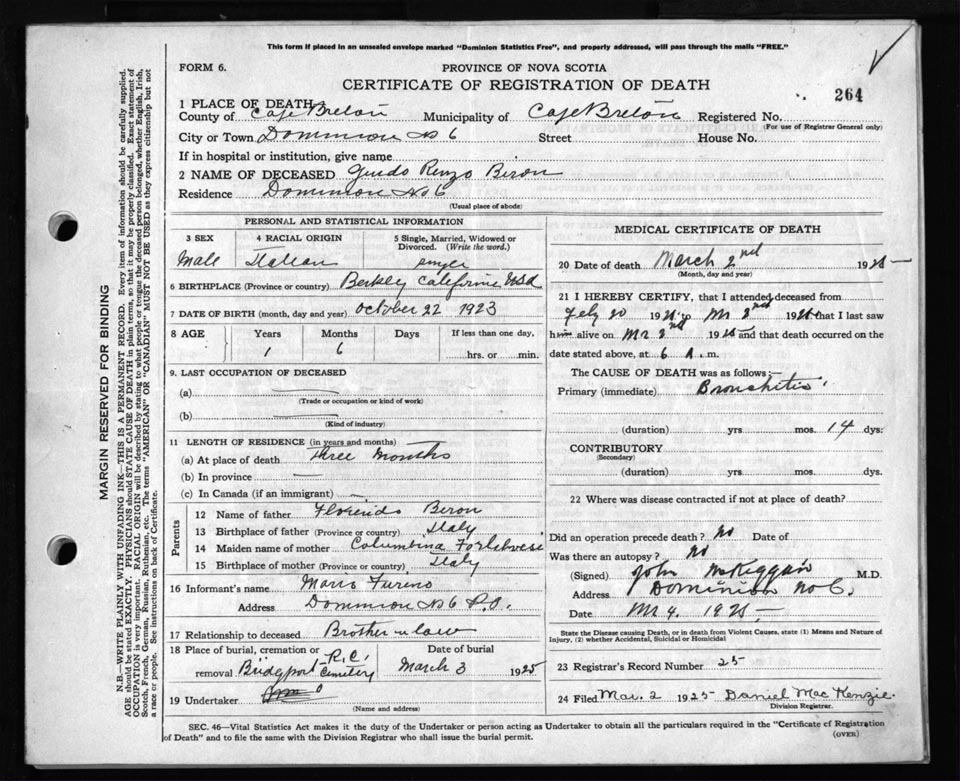 This form if placed in an unsealed envelope marked "Dominion Statistics Free", and properly addressed, will pass through the mails "FREE."
FORM 6.
PROVINCE OF NOVA SCOTIA
CERTIFICATE OF REGISTRATION OF DEATH
264
1 PLACE OF DEATH
County of Cape Breton Municipality of Cape Breton Registered No.
(For use of Registrar General only)
City or Town Dominion No 6 Street House No.
If in hospital or institution, give name
2 NAME OF DECEASED Guido Renzo Biron
Residence Dominion No 6
(Usual place of abode)
PERSONAL AND STATISTICAL INFORMATION
3 SEX 4 RACIAL ORIGIN 5 Single, Married, Widowed or Divorced. (Write the word.)
Male Italian
6 BIRTHPLACE (Province or country) Berkley California USA
7 DATE OF BIRTH (month, day and year) October 22 1923
8 AGE Years Months Days If less than one day,
1 6 hrs. or min.
9. LAST OCCUPATION OF DECEASED
(a)
(Trade or occupation or kind of work)
(b)
(Kind of industry)
11 LENGTH OF RESIDENCE (in years and months)
(a) At place of death three months
(b) In province
(c) In Canada (if an immigrant)
Parents
12 Name of father Florindo Biron
13 Birthplace of father (Province or country) Italy
14 Maiden name of mother Columbina
15 Birthplace of mother (Province or country) Italy
16 Informant's name Mario Furino
Address Dominion No 6 P.O.
17 Relationship to deceased Brother n law
18 Place of burial, cremation or removal Bridgport R.C. Cemetery
Date of burial
March 3 1925
19 Undertaker
(Name and address)
MEDICAL CERTIFICATE OF DEATH
20 Date of death March 2nd 1925
(Month, day and year)
21 I HEREBY CERTIFY, that I attended deceased from
Feby 20 1925 to Mr 2nd 1925 that I last saw
him alive on Mr 2nd 1925 and that death occurred on the
date stated above, at 6 A.m.
The CAUSE OF DEATH was as follows:—
Primary (immediate) Bronchitis
(duration) yrs mos. 14 dys.
CONTRIBUTORY
(Secondary)
(duration) yrs. mos. dys.
22 Where was disease contracted if not at place of death?
Did an operation precede death? No Date of
Was there an autopsy? No
(Signed) John McKiggan M.D.
Address Dominion No 6.
Date Mr 4. 1925
State the Disease causing Death, or in death from Violent Causes, state (1) Means and Nature of
Injury, (2) whether Accidental, Suicidal or Homicidal
23 Registrar's Record Number 25
24 Filed Mar. 2 1925 Daniel MacKenzie.
Division Registrar.
SEC. 46—Vital Statistics Act makes it the duty of the Undertaker or person acting as Undertaker to obtain all the particulars required in the "Certificate of Registration
of Death" and to file the same with the Division Registrar who shall issue the burial permit.
(OVER)
MARGIN RESERVED FOR BINDING
N.B.—WRITE PLAINLY WITH UNFADING INK—THIS IS A PERMANENT RECORD. Every item of information should be carefully supplied.
AGE should be stated EXACTLY. PHYSICIANS should STATE CAUSE OF DEATH in plain terms, so that it may be properly classified. Exact statement of
OCCUPATION is very important. RACIAL ORIGIN will be described by stating to what people or tongue the deceased person belonged, whether English, Irish,
Scotch, French, German, Russian, Ruthenian, etc. The terms "AMERICAN" OR "CANADIAN" MUST NOT BE USED as they express citizenship but not
a race or people. See instructions on back of Certificate.